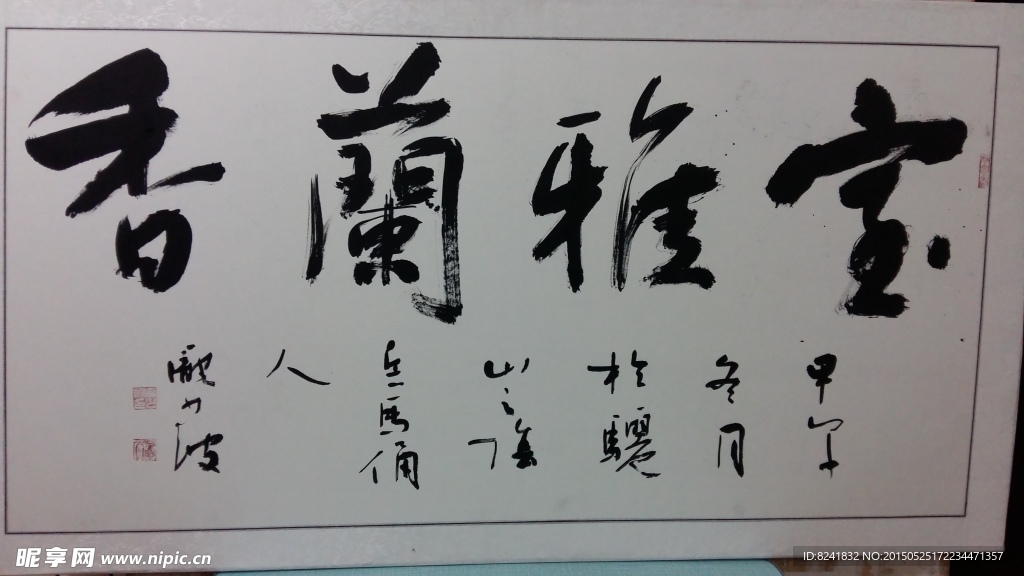 室雅蘭香
甲午
冬月
於驪
山之陰
兵馬俑
人
昵享网 www.nipic.cn
ID:8241832 NO:20150525172234471357